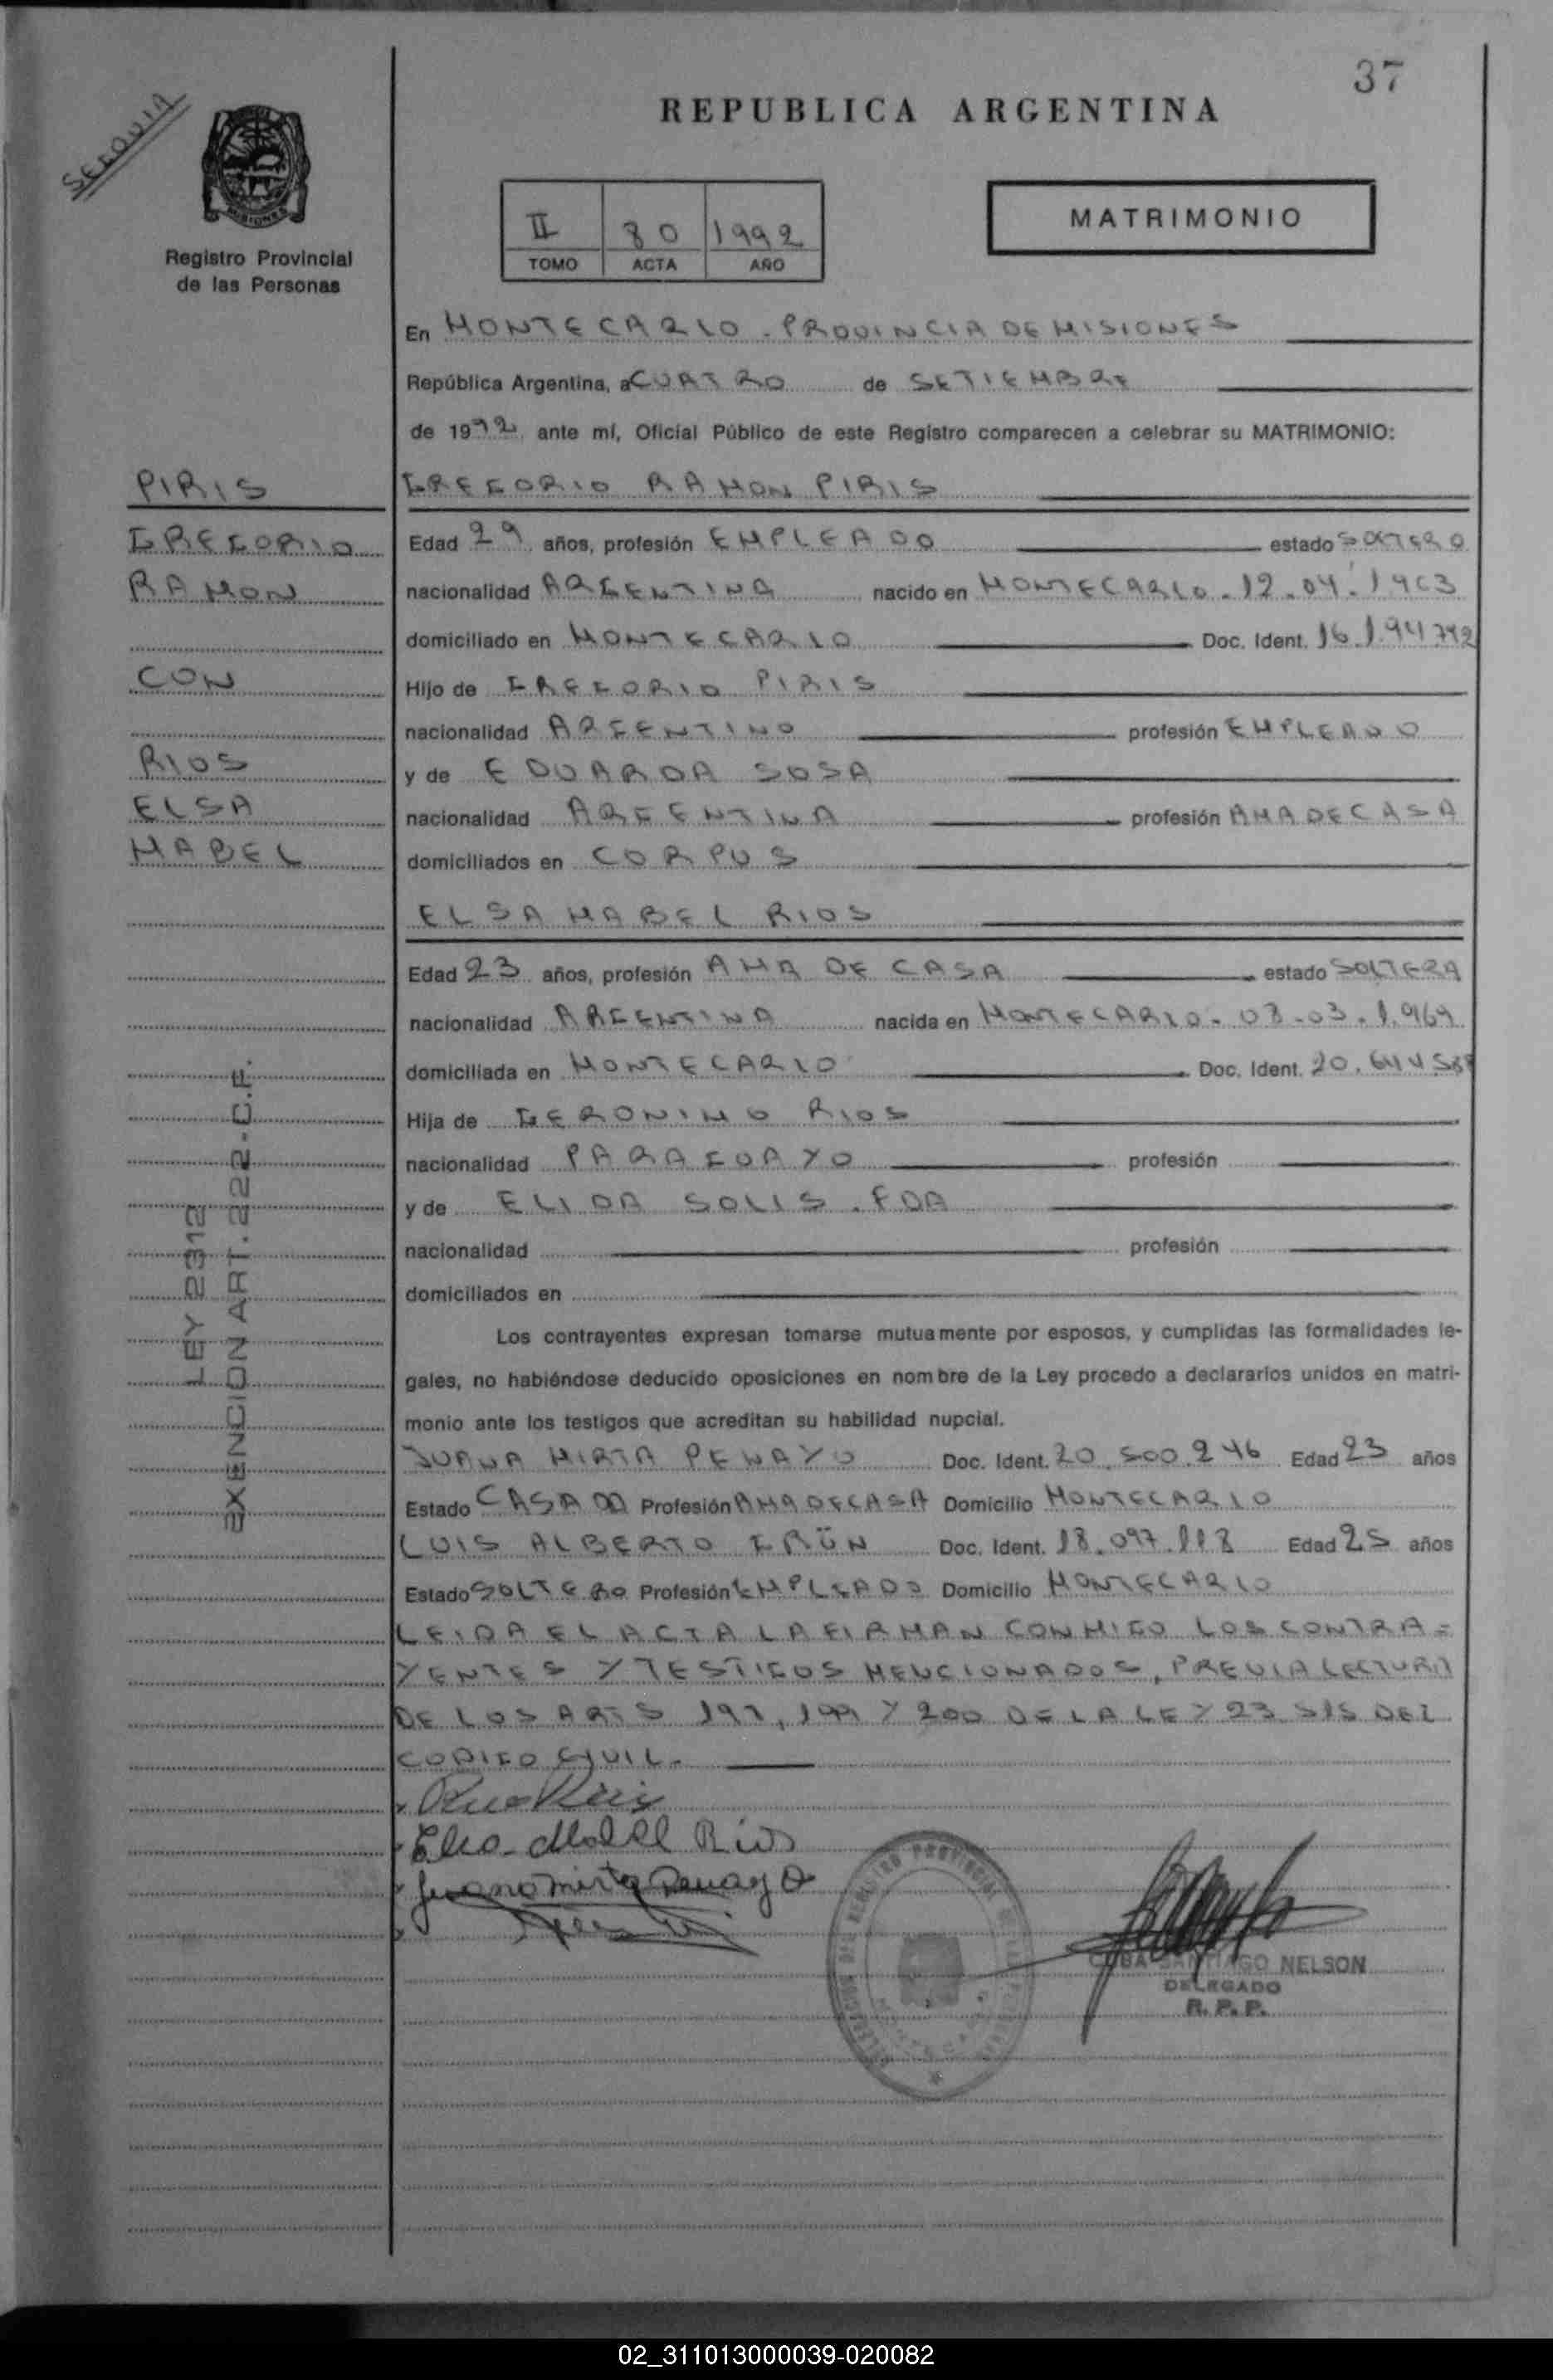 37
REPUBLICA ARGENTINA
SEGOUIA
MISIONES
Registro Provincial
de las Personas
II 80 1992
TOMO ACTA AÑO
MATRIMONIO
En MONTECARLO - PROVINCIA DE MISIONES
República Argentina, a CUATRO de SETIEMBRE
de 1992 ante mí, Oficial Público de este Registro comparecen a celebrar su MATRIMONIO:
PIRIS
GREGORIO RAMON PIRIS
GREGORIO
Edad 29 años, profesión EMPLEADO estado SOLTERO
RAMON
nacionalidad ARGENTINA nacido en MONTECARLO. 12.04.1963
domiciliado en MONTECARLO Doc. Ident. 16.194.742
CON
Hijo de GREGORIO PIRIS
nacionalidad ARGENTINO profesión EMPLEADO
RIOS
y de EDUARDA SOSA
ELSA
nacionalidad ARGENTINA profesión AMA DE CASA
MABEL
domiciliados en CORPUS
ELSA MABEL RIOS
Edad 23 años, profesión AMA DE CASA estado SOLTERA
nacionalidad ARGENTINA nacida en MONTECARLO. 03-03.1.969
domiciliada en MONTECARLO Doc. Ident. 20.644
Hija de GERONIMO RIOS
nacionalidad PARAGUAYO profesión
y de ELIDA SOLIS. FDA
nacionalidad profesión
domiciliados en
LEY 2312
EXENCION ART. 22.-C.F.
Los contrayentes expresan tomarse mutuamente por esposos, y cumplidas las formalidades le-
gales, no habiéndose deducido oposiciones en nombre de la Ley procedo a declararlos unidos en matri-
monio ante los testigos que acreditan su habilidad nupcial.
JUANA MIRTA PENAYO Doc. Ident. 20.500.246 Edad 23 años
Estado CASADA Profesión AMA DE CASA Domicilio MONTECARLO
LUIS ALBERTO GRÜN Doc. Ident. 18.097.118 Edad 25 años
Estado SOLTERO Profesión EMPLEADO Domicilio MONTECARLO
LEIDA EL ACTA LA FIRMAN CONMIGO LOS CONTRA=
YENTES Y TESTIGOS MENCIONADOS, PREVIA LECTURA
DE LOS ARTS 197, 199 Y 200 DE LA LEY 23 515 DEL
CODIGO CIVIL.
Elsa Mabel Rios
Juana Mirta Penayo
SANTIAGO NELSON
DELEGADO
R. P. P.
02_311013000039-020082